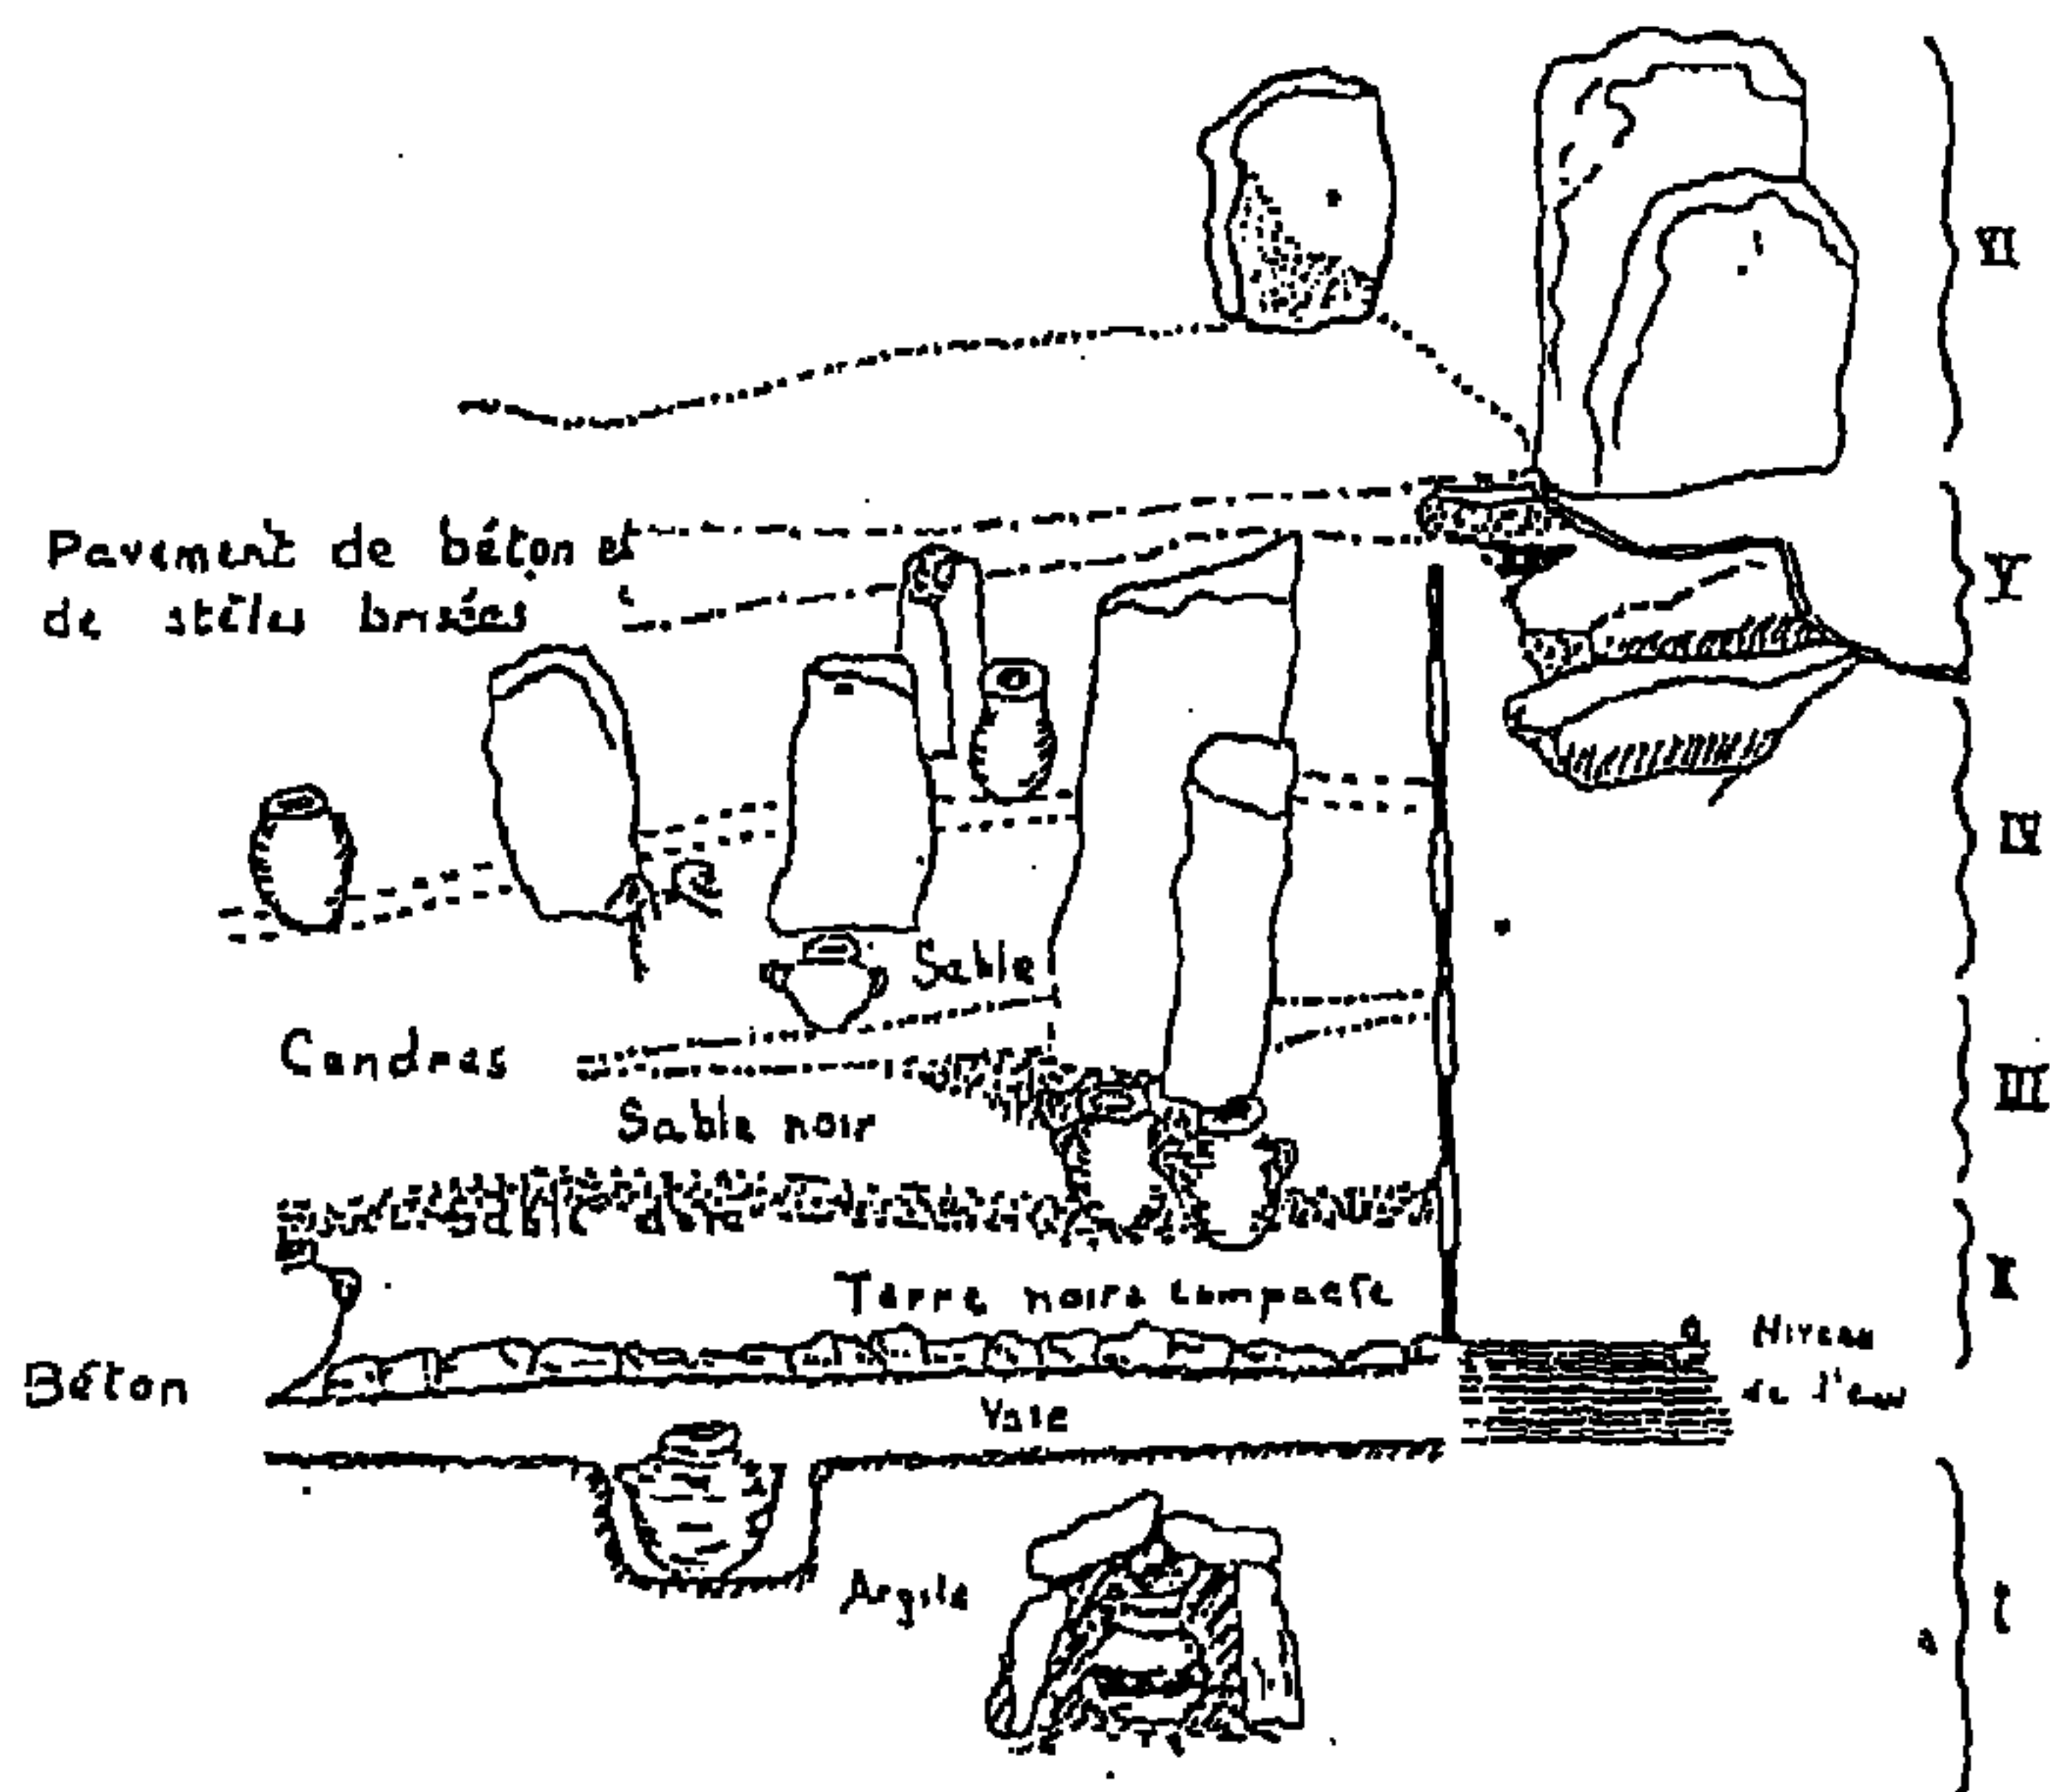 VI
Pavement de béton et
de stèles brisées
V
IV
Sable
Cendres
III
Sable noir
Sable doré
Terre noire compacte
Niveau
de l'eau
Béton
Vase
Argile
I